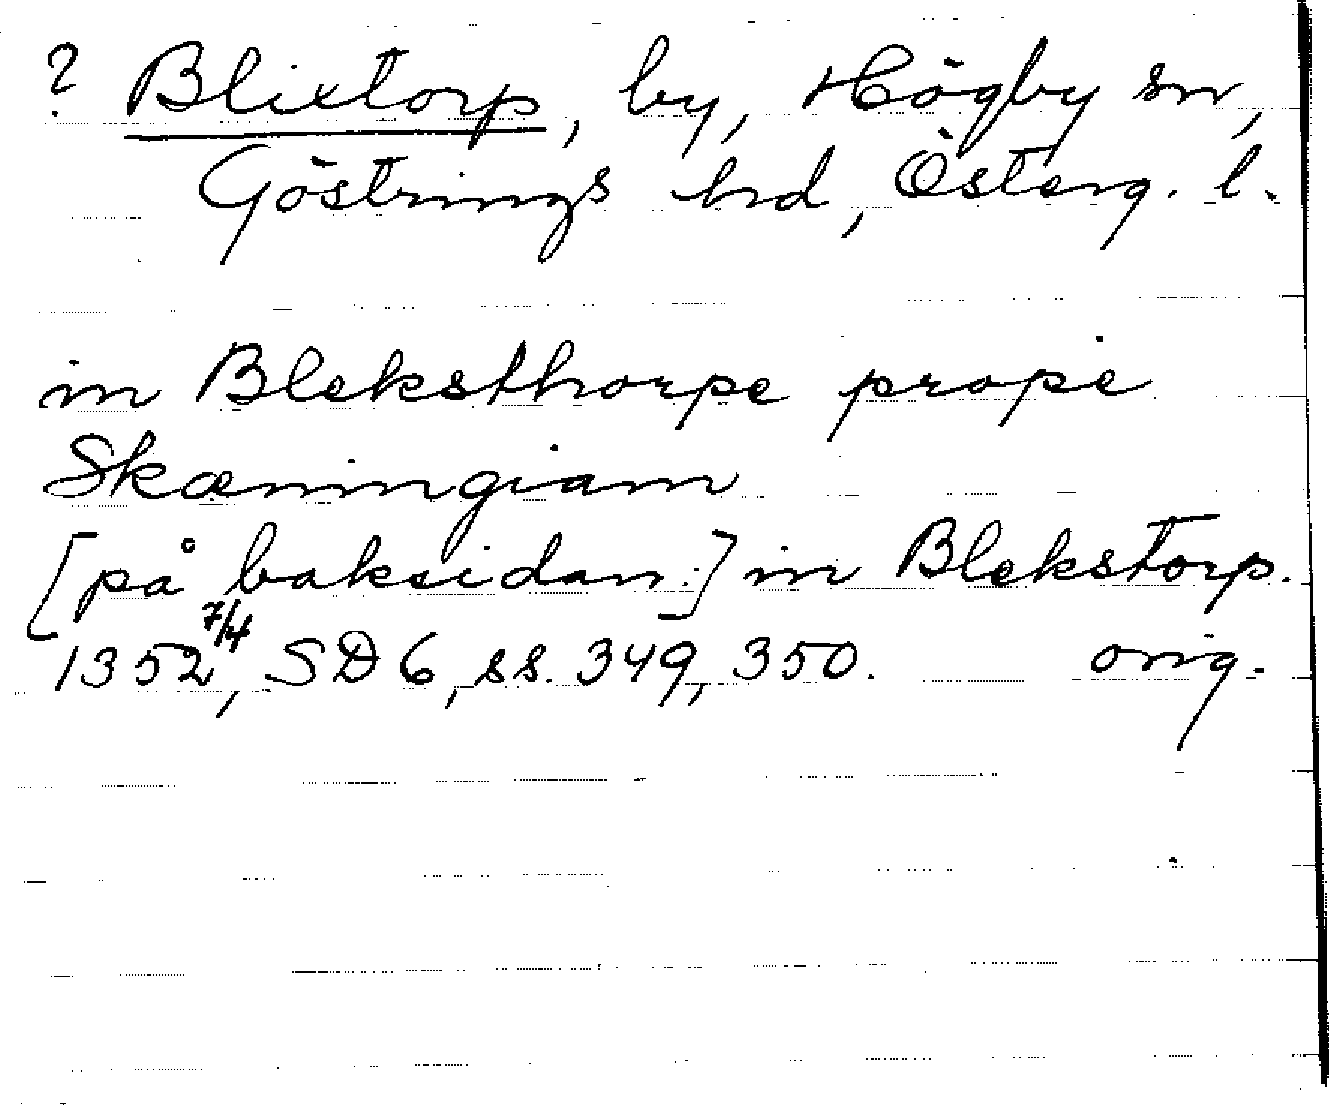 ? Blixtorp, by, Högby sn,
Göstrings hrd, Österg. l.
in Bleksthorpe prope
Skæningiam
[på baksidan:] in Blekstorp.
1352 7/4, SD 6, ss. 349, 350. orig.